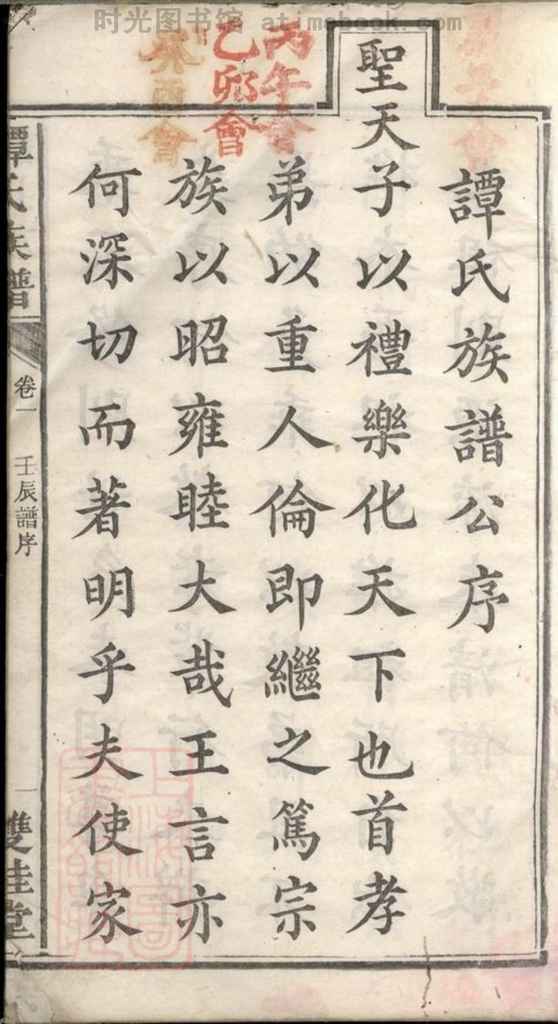 时光图书馆 - atimebook.com
譚氏族譜公序
聖天子以禮樂化天下也首孝
弟以重人倫即繼之篤宗
族以昭雍睦大哉王言亦
何深切而著明乎夫使家
丙午會
乙卯會
癸酉會
譚氏族譜
卷一
壬辰譜序
一
雙桂堂